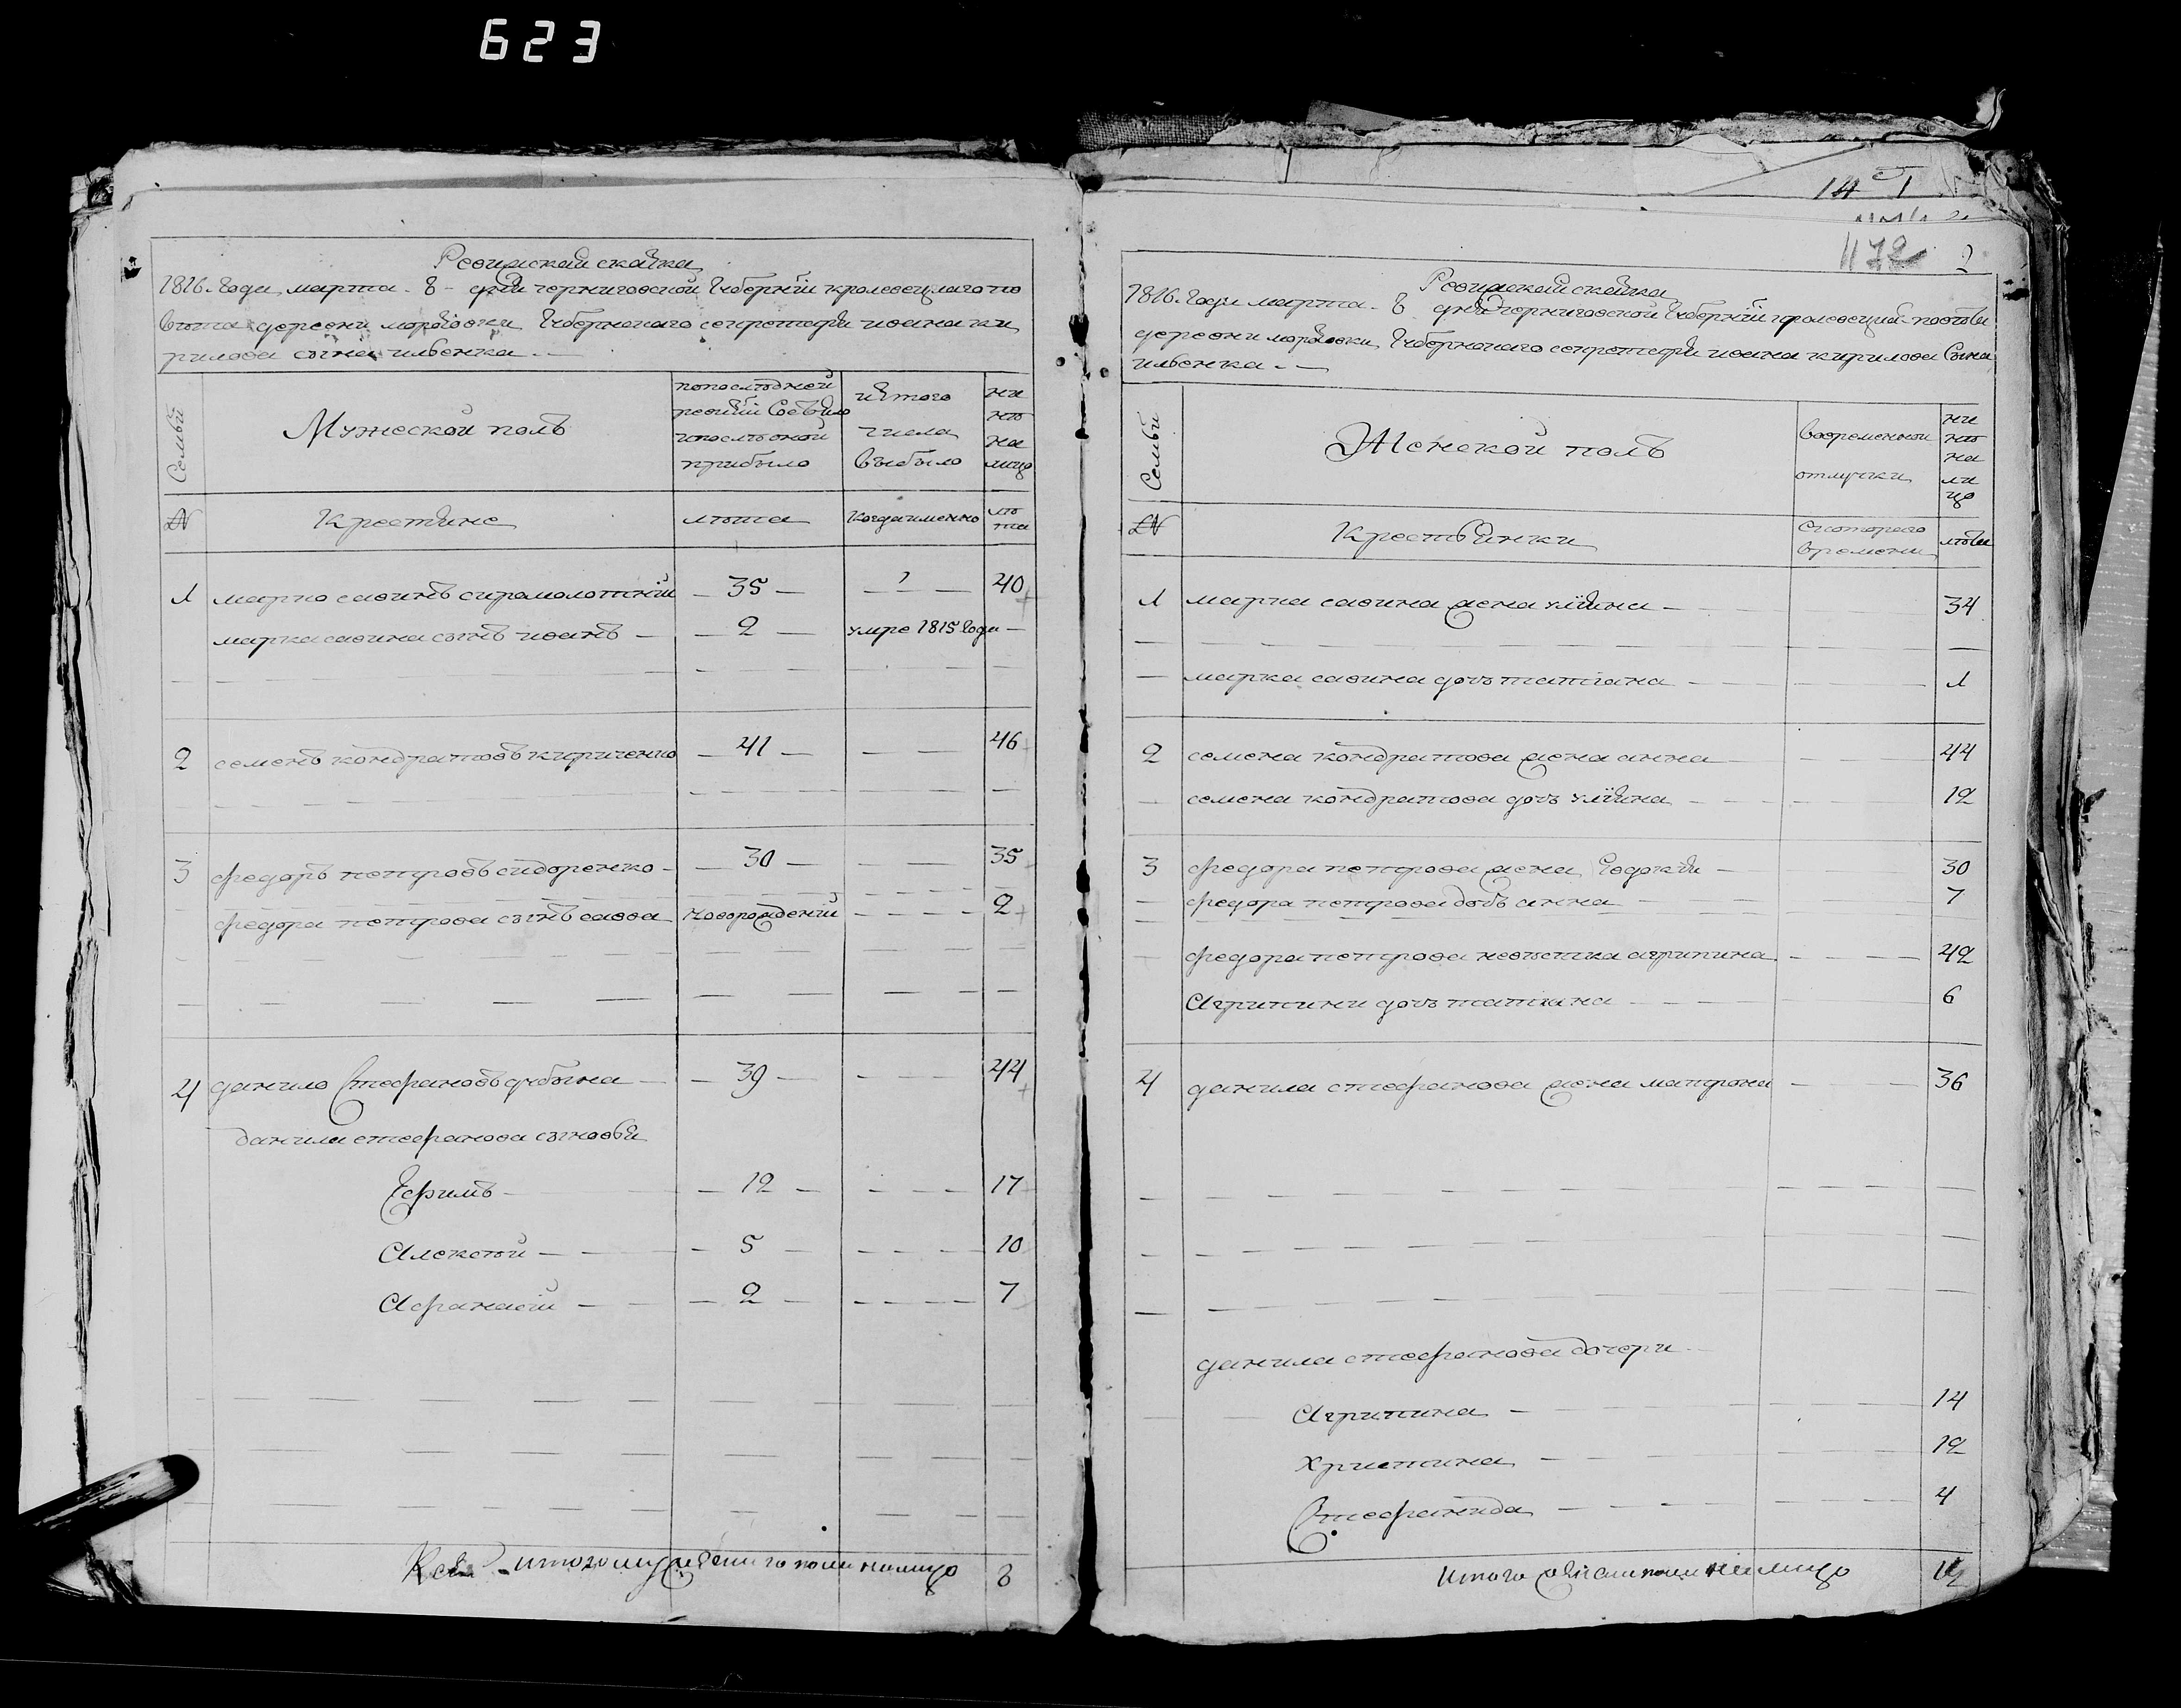 623
Ревизская сказка
1816. года марта. 8 - дня черниговской Губерніи кролевецкаго по
вета деревни Губернскаго секретаря ивана ки
рилова сына ильенка. —
Семьи
Мужеской полъ
попоследней ревизіи Состояло ипоследней прибыло
изтого числа выбыло
ни не на лицо
№
Крестяне
лета
Когда именно
ле та
1 марко савинъ сиромолотній — 35 — 40
марка савина сынъ иванъ — 2 — умре 1815 года —
2 семенъ кондратовъ кириченко — 41 — 46
3 федоръ петровъ сидоренко — 30 — 35
федора петрова сынъ савва новорожденій 2
4 данило Стефановъ дубына — 39 — 44
данила стефанова сыновья
Ефимъ — 12 — 17
Алексей — 5 — 10
Афанасій — 2 — 7
итого мужеска пола налицо 8
14
472
2
Ревизская сказка
1816. года марта. 8 дня черниговской Губерніи кролевецкаго повета
деревни Губернскаго секретаря ивана кирилова Сына
ильенка. —
Семьи
Женской полъ
вовременной отлучки
ни не на ли цо
№
Крестьянки
Скоторого времени
лета
1 марка савина жена улияна — 34
марка савина дочъ татіана — 1
2 семена кондратова жена анна 44
семена кондратова дочъ улияна 12
3 федора петрова жена Евдокія — 30
федора петрова дочъ анна 7
федора петрова невестка агрипина 42
Агрипини дочъ татіана 6
4 данила стефанова жена матрона — 36
данила стефанова дочери
Агрипина — 14
Христина — 12
Стефанида — 4
итого женска пола налицо 12